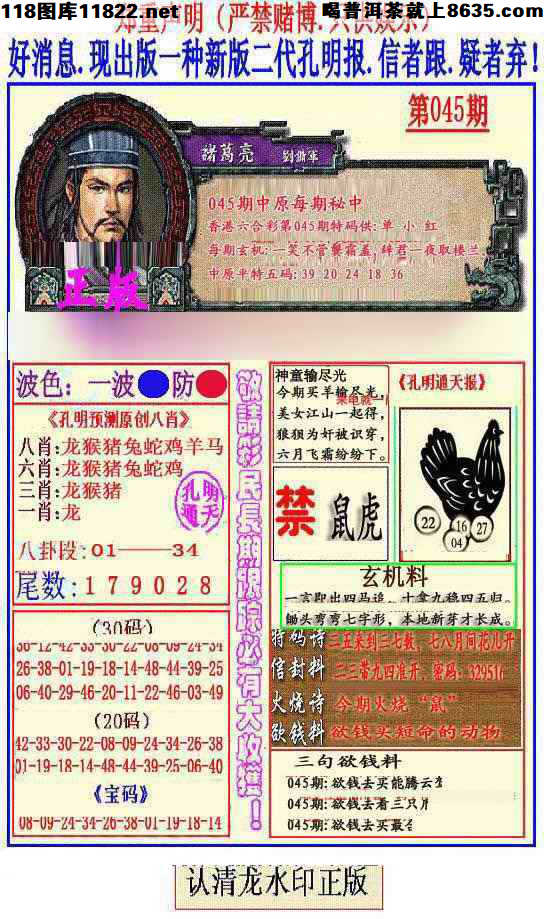 118图库11822.net
喝普洱茶就上8635.com
郑重声明（严禁赌博.只供娱乐）
好消息.现出版一种新版二代孔明报.信者跟.疑者弃!
第045期
諸葛亮
045期中原每期秘中
香港六合彩第045期特码供:单 小 红
每期玄机:一笑不管 盖,辞君一夜取楼兰
中原平特五码:39 20 24 18 36
正版
波色:一波 防
《孔明预测原创八肖》
八肖:龙猴猪兔蛇鸡羊马
六肖:龙猴猪兔蛇鸡
三肖:龙猴猪
一肖:龙
孔明
通天
八卦段:01——34
尾数:179028
(30码)
30-12-42-33-30-22-08-09-24-34
26-38-01-19-18-14-48-44-39-25
06-40-29-46-20-11-22-46-03-49
(20码)
42-33-30-22-08-09-24-34-26-38
01-19-18-14-48-44-39-25-06-40
《宝码》
08-09-24-34-26-38-01-19-18-14
敬請彩民長期跟踪必有大收獲!
神童输尽光
今期买羊输尽光,
美女江山一起得,
狼狈为奸被识穿,
六月飞霜纷纷下。
《孔明通天报》
禁
鼠虎
22
16
27
04
玄机料
一言即出四马追,十拿九稳四五归。
锄头弯弯七字形,本地新芽才长成。
特码诗 三五来到三七数,七八月同花儿开
信封料 二三带九四准开,密码:329516
火烧诗 今期火烧“鼠”
欲钱料 欲钱买短命的动物
三句欲钱料
045期:欲钱去买能腾云
045期:欲钱去看三只
045期:欲钱去买最
认清龙水印正版